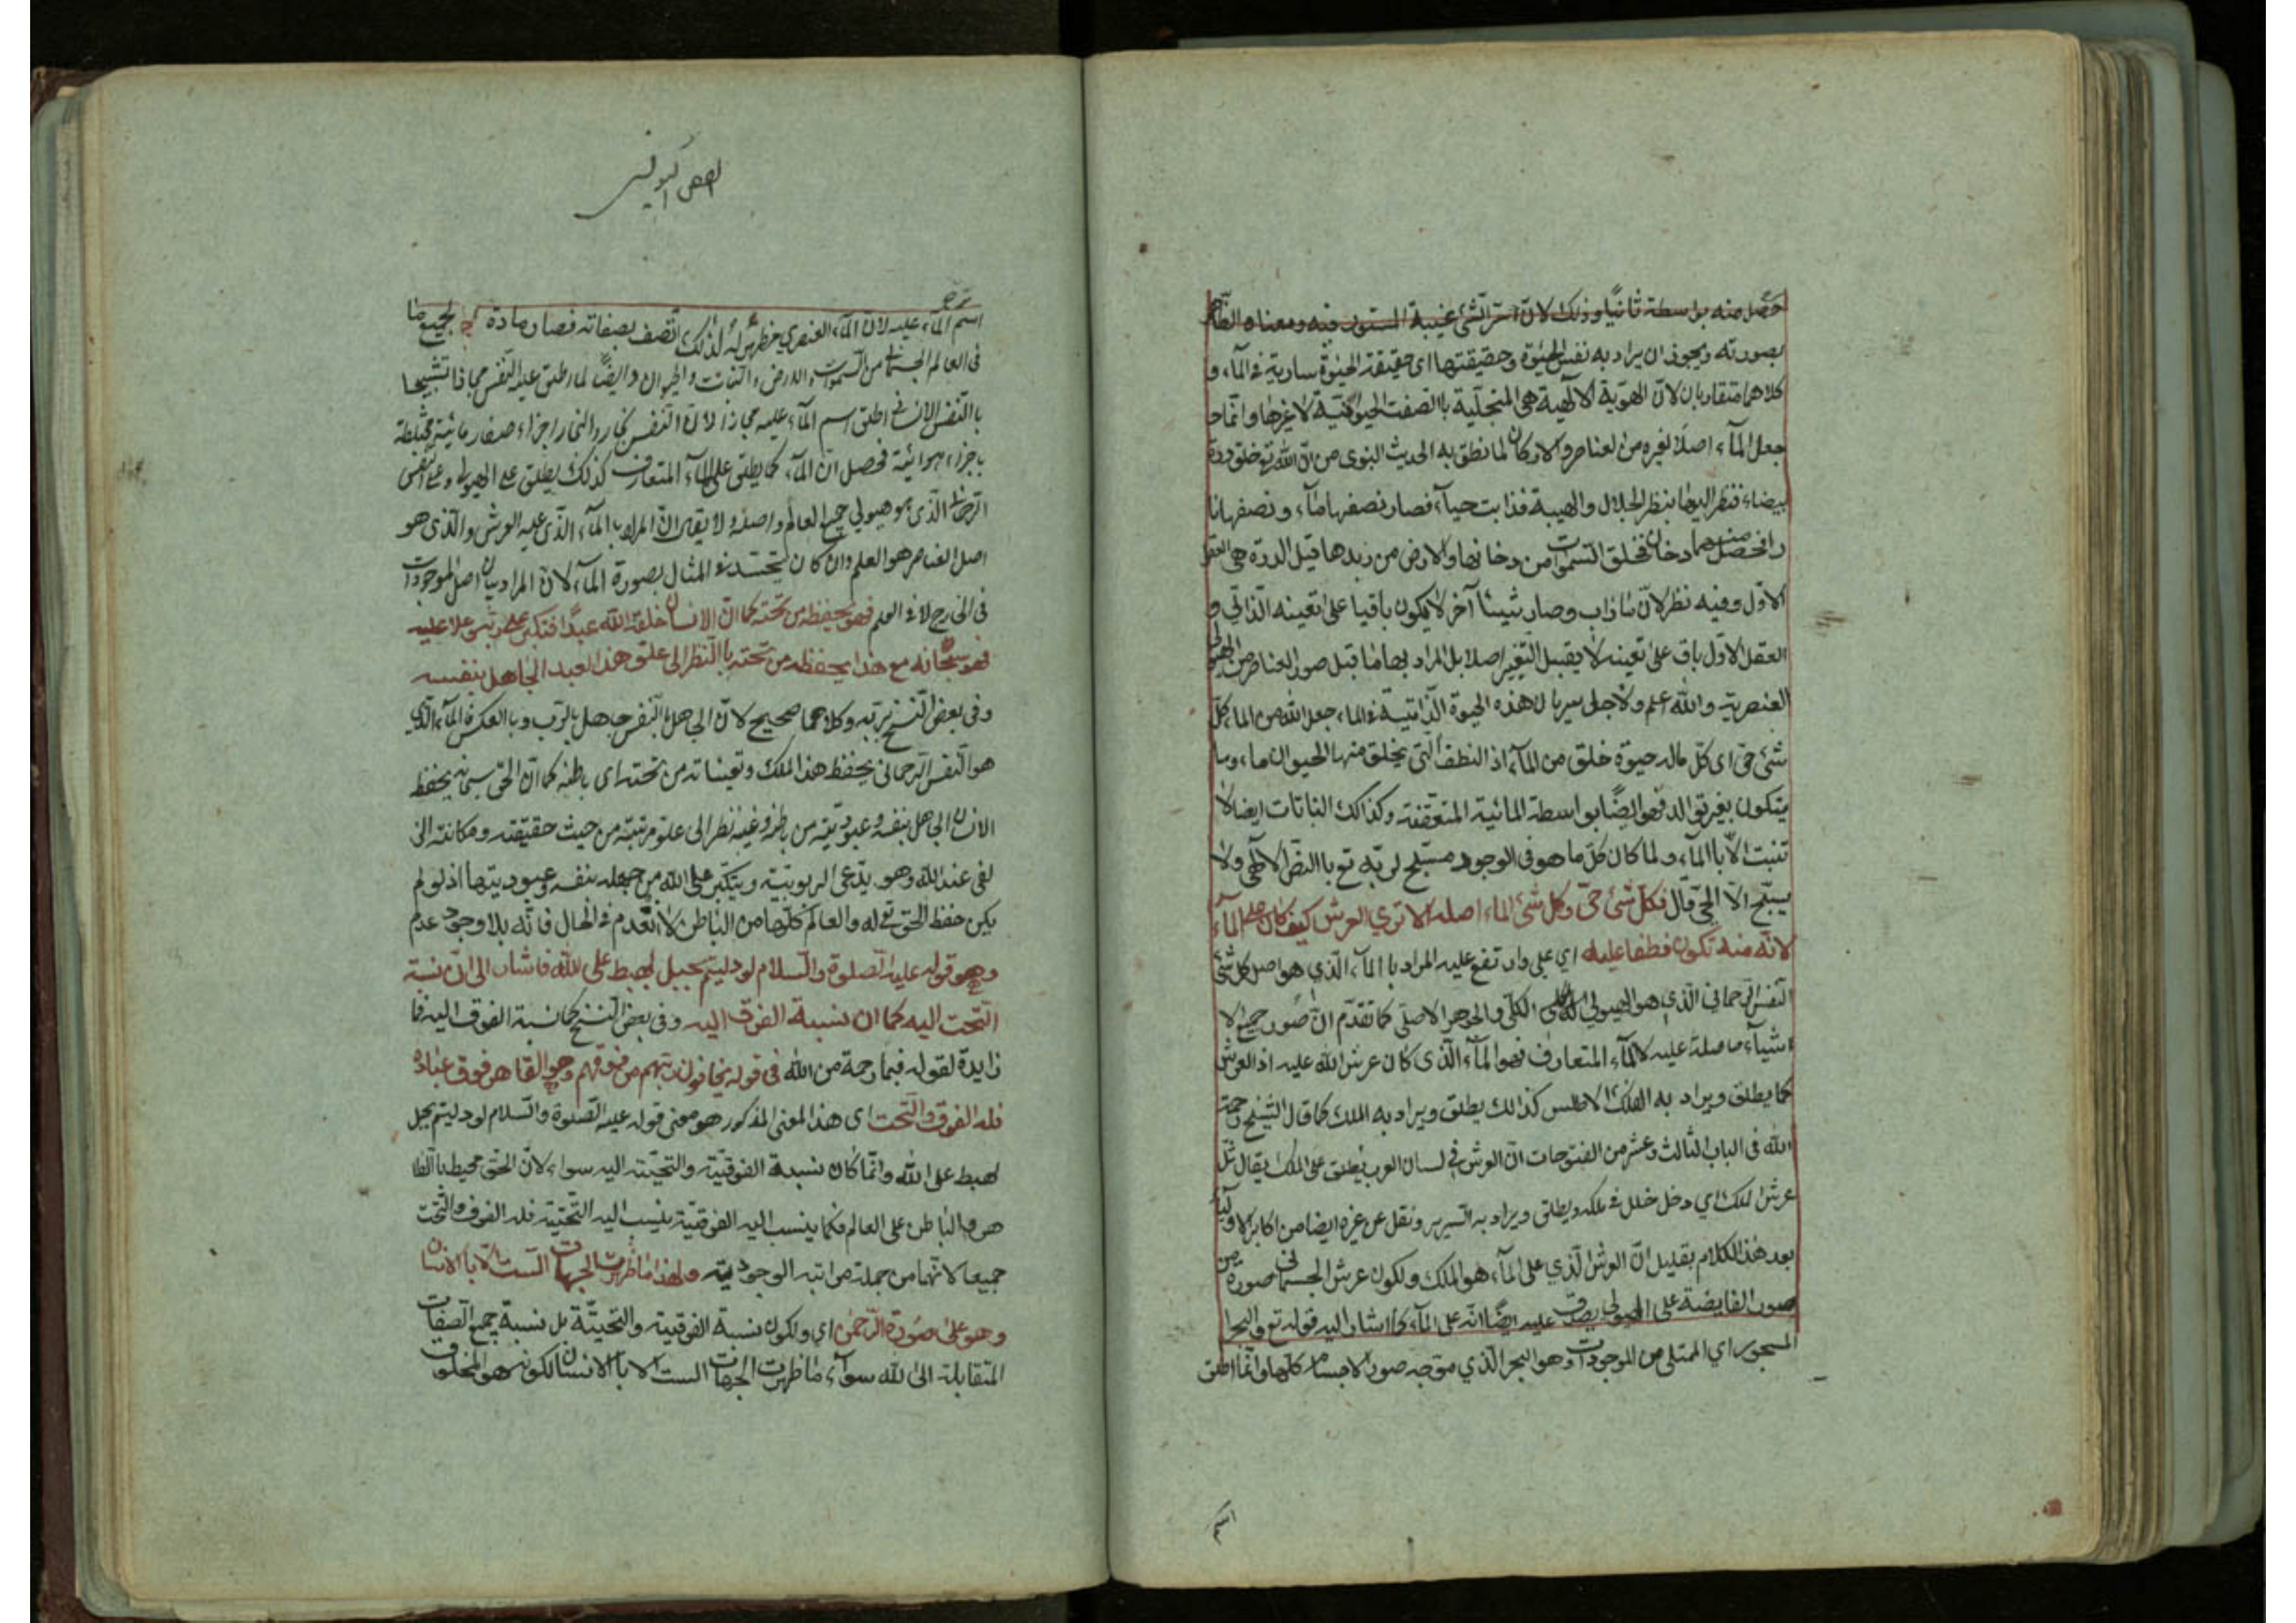 حصل منه بواسطة ثانيا وذلك لان سر الشئ غيبة المستور فيه ومعناه الظاهر
بصورته ويجوز ان يراد به نفس الحيوة وحقيقتها اى حقيقة الحيوة سارية فى الماء و
كلاهما متقاربان لان الهوية الالهية هى المتجلية باالصفت الحيوانية لا غيرها وانما
جعل الماء اصلا لغيره من العناصر والاركان لما نطق به الحديث النبوى من ان الله تع خلق درة
بيضاء فنظر اليها بنظر الجلال والهيبة فذابت حياء فصار نصفها ماء ونصفها نا
را فحصل منهما دخان فخلق السموات من دخانها والارض من زبدها قيل الدرة هى العقل
الاول وفيه نظر لان ما ذاب وصار شيئا آخر لا يكون باقيا على تعينه الذاتى و
العقل الاول باق على تعينه لا يقبل التغير اصلا بل المراد بها ما قبل صور العناصر من الهيولى
العنصرية والله اعلم ولاجل سريان هذه الحيوة الذاتية فى الماء جعل الله من الماء كل
شئ حى اى كل ماله حيوة خلق من الماء اذ النطف التى يخلق منها الحيوان ماء وما
يتكون بغير توالد فهو ايضا بواسطة المائية المتعفنة وكذالك النباتات ايضا لا
تنبت الا باالماء ولما كان كل ما هو فى الوجود مسبح لربه تع باالنص الالهى ولا
يسبح الا الحى قال فكل شئ حى وكل شئ الماء اصله الا ترى العرش كيف كان على الماء
لانه منه تكون فطفا عليه اى على وارتفع عليه المراد باالماء الذى هو اصل كل شئ
النفس الرحمانى الذى هو الهيولى الكلى والجوهر الاصلى كما تقدم ان صور جميع الا
شياء حاصلة عليه لا الماء المتعارف فهو الماء الذى كان عرش الله عليه اذ العرش
كما يطلق ويراد به الفلك الاطلس كذالك يطلق ويراد به الملك كما قال الشيخ رحمة
الله فى الباب الثالث وعشر من الفتوحات ان العرش فى لسان العرب يطلق على الملك يقال ثل
عرش الملك اى دخل خلل فى ملكه ويطلق ويراد به السرير ونقل عن غيره ايضا من اكابر الاوليا
بعد هذا الكلام بقليل ان العرش الذى على الماء هو الملك ولكون عرش الجسمانى صورة من
صور الفايضة على الهيولى يصدق عليه ايضا انه على الماء كما اشار اليه قوله تع والبحر
المسجور اى الممتلى من الموجودات وهو البحر الذى موجه صور الاجسام كلها وانما اطلق
اسم
اسم الماء عليه لان الماء العنصرى مظهر له لذلك اتصف بصفاته فصار مادة لجميع ما
فى العالم الجسمانى من السموات والارض والنبات والحيوان وايضا لما يطلق عليه النفس مجازا تشبيها
باالنفس الانسانى اطلق اسم الماء عليه مجازا لان النفس بخار والبخار اجزاء صغار مائية مختلطة
باجزاء هوائية فحصل ان الماء كما يطلق على الماء المتعارف كذلك يطلق على الهيولى وعلى النفس
الرحمانى الذى هو هيولى جميع العالم واصله ولا يقال ان المراد باالماء الذى عليه العرش والذى هو
اصل العناصر هو العلم وان كان يتجسد فى المثال بصورة الماء لان المراد بيان اصل الموجودات
فى الخارج لا فى العلم فهو يحفظه من تحته كما ان الانسان خلقه الله عبدا فتكبر على ربه وعلا عليه
فهو سبحانه مع هذا يحفظه من تحته باالنظر الى علو هذا العبد الجاهل بنفسه
وفى بعض النسخ بربه وكلاهما صحيح لان الجاهل باالنفس جاهل باالرب وباالعكس فاالماء الذى
هو النفس الرحمانى يحفظ هذا الملك وتعيناته من تحته اى باطنه كما ان الحق سبحانه يحفظ
الانسان الجاهل بنفسه وعبوديته من باطنه وغيبه نظر الى علو مرتبته من حيث حقيقته ومكانته التى
لهى عند الله وهو يدعى الربوبية ويتكبر على الله من جهله بنفسه وعبوديتها اذ لو لم
يكن حفظ الحق تع له والعالم كلها من الباطن لانعدم فى الحال فانه بلا وجود عدم
وهو قوله عليه الصلوة والسلام لو دليتم بحبل لهبط على الله فاشار الى ان نسبة
التحت اليه كما ان نسبة الفوق اليه وفى بعض النسخ كما نسبة الفوق اليه فما
زايدة لقوله فبما رحمة من الله فى قوله يخافون ربهم من فوقهم وهو القاهر فوق عباده
فله الفوق والتحت اى هذا المعنى المذكور هو معنى قوله عليه الصلوة والسلام لو دليتم بحبل
لهبط على الله وانما كان نسبة الفوقية والتحتية اليه سواء لان الحق محيط باالظا
هر والباطن على العالم فكما ينسب اليه الفوقية ينسب اليه التحتية فله الفوق والتحت
جميعا لانهما من جملة مراتبه الوجودية ولهذا ما ظهرت الجهات الست الا باالانسان
وهو على صورة الرحمن اى ولكون نسبة الفوقية والتحتية بل نسبة جميع الصفات
المتقابلة الى الله سواء ما ظهرت الجهات الست الا باالانسان لكونه هو المخلوق